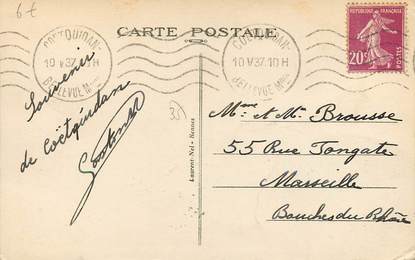 6 €
CARTE POSTALE
COETQUIDAN
10 V 37 10 H
BELLEVUE
COETQUIDAN
10 V 37 10 H
BELLEVUE
REPUBLIQUE FRANÇAISE
20c
POSTES
Souvenir
de Coëtquidan
35
Laurent-Nel - Rennes
Mme et M. Brousse
55 Rue Tongate
Marseille
Bouches du Rhône